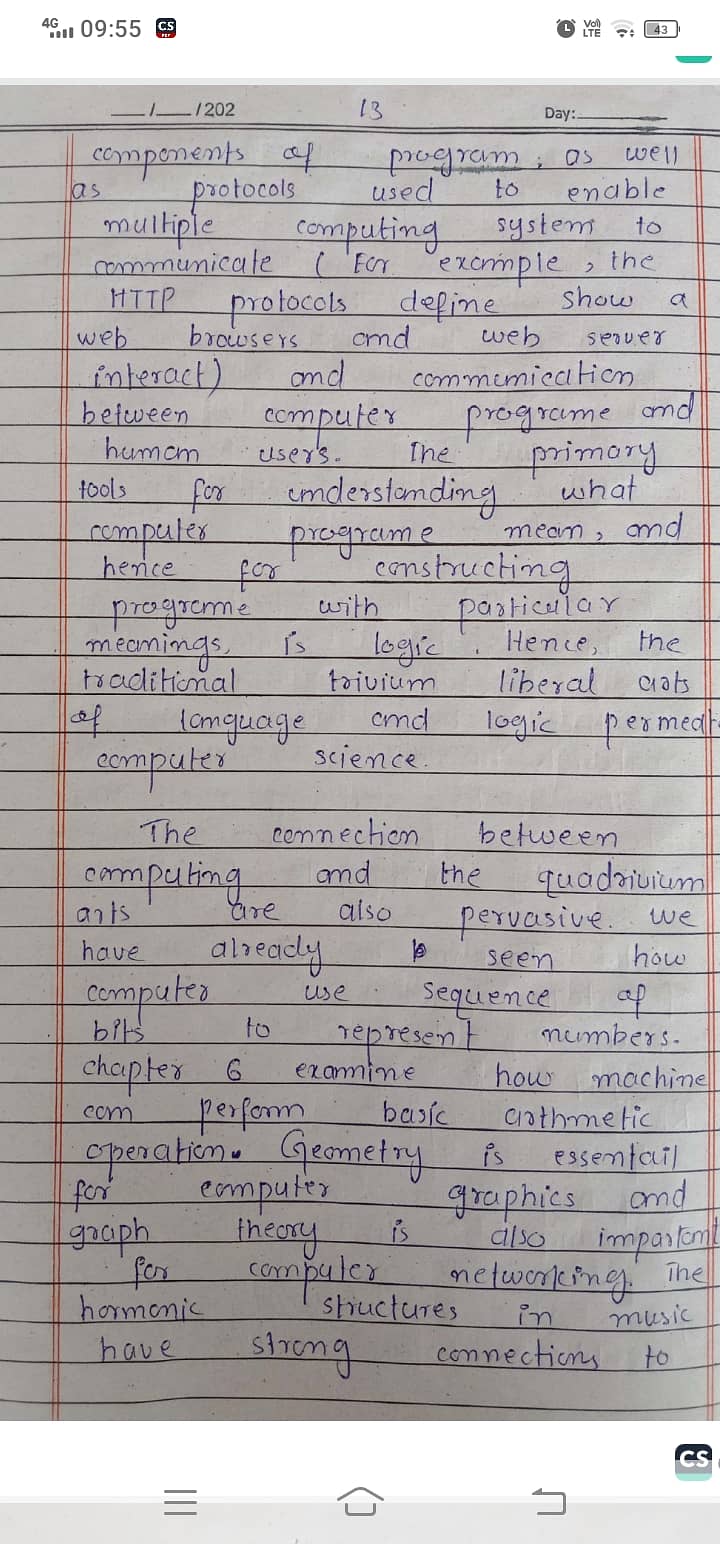 4G 09:55 CS PDF Vo) LTE 43
__/__/202 13 Day:
components of program, as well
as protocols used to enable
multiple computing system to
communicate ( For example, the
HTTP protocols define show a
web browsers and web server
interact) and communication
between computer programe and
human users. The primary
tools for understanding what
computer programe mean, and
hence for constructing
programe with particular
meanings, is logic. Hence, the
traditional trivium liberal arts
of language and logic permeat
computer science.
The connection between
computing and the quadrivium
arts are also pervasive. we
have already seen how
computer use sequence of
bits to represent numbers.
chapter 6 examine how machine
can perform basic arthmetic
operation. Geometry is essentail
for computer graphics and
graph theory is also important
for computer networking. The
harmonic structures in music
have strong connections to
CS